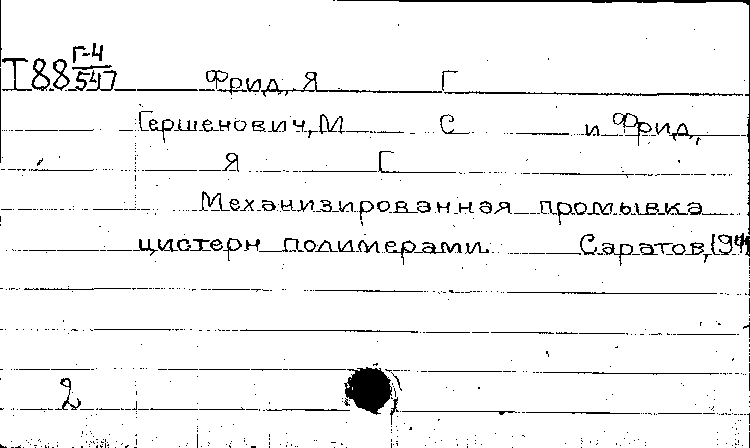 Т88 Г-4/547 Фрид, Я Г
Гершенович, М С и Фрид,
Я Г
Механизированная промывка
цистерн полимерами. Саратов,
2